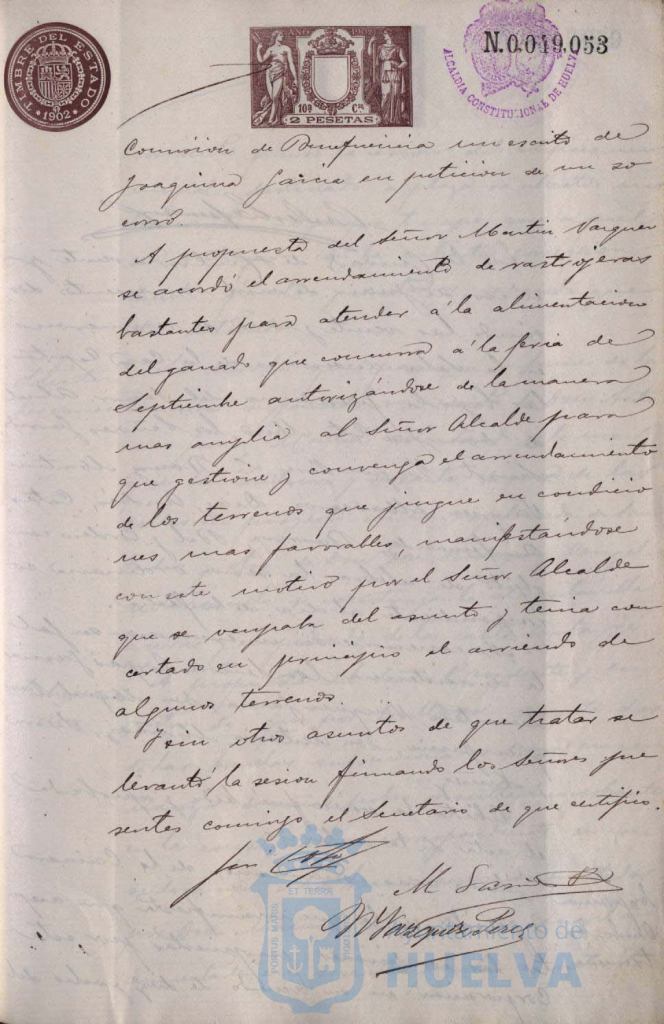 TIMBRE DEL ESTADO
1902
10ª Cª
2 PESETAS
N.0.049.053
ALCALDIA CONSTITUCIONAL DE HUELVA
Comision de Beneficencia un escrito de
Joaquina Garcia en peticion de un so
corro.
A propuesta del Señor Martin Vazquez
se acordó el arrendamiento de rastrojeras
bastantes para atender á la alimentacion
del ganado que concurra á la feria de
Septiembre autorizándose de la manera
mas amplia al Señor Alcalde para
que gestione y convenga el arrendamiento
de los terrenos que juzgue en condicio
nes mas favorables, manifestándose
con este motivo por el Señor Alcalde
que se ocupaba del asunto y tenia con
certado en principio el arriendo de
algunos terrenos.
Y sin otros asuntos de que tratar se
levantó la sesion firmando los Señores pre
sentes conmigo el Secretario de que certifico.
M
M Vazquez Perez
PORTUS MARIS
ET TERRÆ
Ayuntamiento de
HUELVA